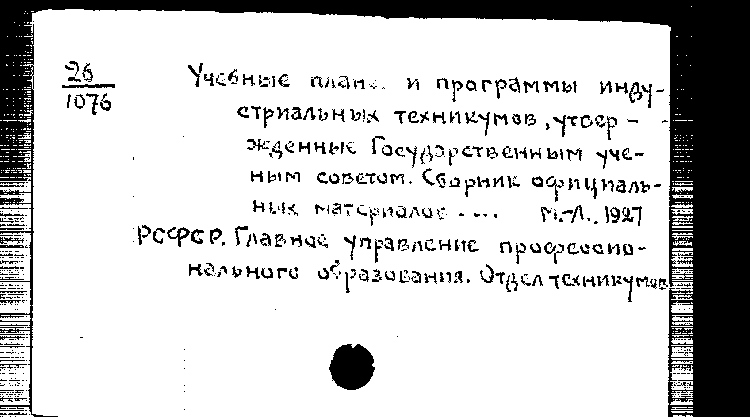 26
1076
Учебные планы и программы инду-
стриальных техникумов, утвер-
жденные Государственным уче-
ным советом. Сборник официаль-
ных материалов .... М.-Л., 1927
РСФСР. Главное управление профессио-
нального образования. Отдел техникумов